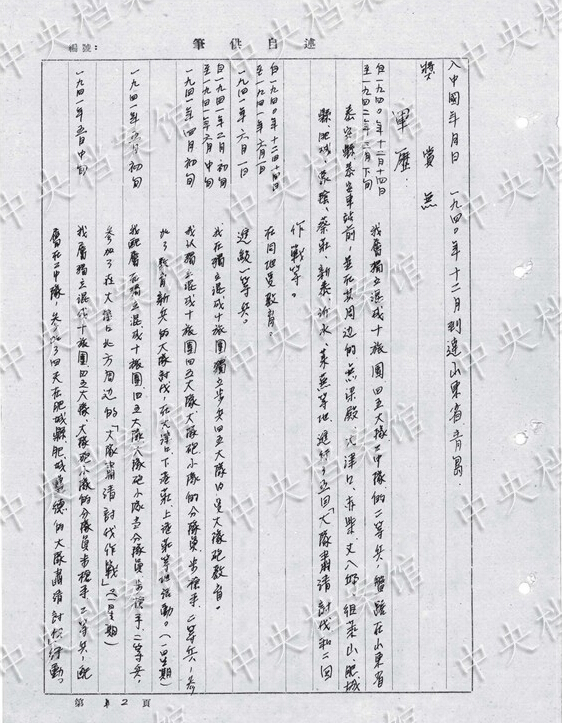 述自供筆
編號：
入中國年月日　一九四〇年十二月到達山東省青島．
獎賞　無
軍歷．
自一九四〇年十二月十四日
至一九四二年三月下旬
我屬獨立混成十旅團四五大隊二中隊的二等兵，
泰安縣泰安車站前，並在其周邊的無梁殿、大津口、
縣、肥城、蒙陰、蔡莊、新泰、沂水、萊蕪等地，進行了五回「大隊肅清討伐和二回
作戰等。
自一九四〇年十二月十四日
至一九四一年六月一日
在同地受教育．
一九四一年六月一日
進級一等兵。
自一九四一年二月初旬
至一九四一年六月中旬
我在獨立混成十旅團獨立步兵四五大隊
大隊砲教育．
一九四一年四月初旬
我以獨立混成十旅團四五大隊、大隊砲小隊的分隊員、步槍手、二等兵，參
加了教育新兵的大隊討伐，在大津口、下港莊、上港莊等地活動。（一個星期）
初旬
我屬獨立混成十旅團四五大隊、大隊砲小隊
分隊員步槍手．二等兵．
參加了在大津口北方周邊的「大隊肅清討伐作戰」
星期）
一九四一年五月中旬
我屬獨立混成十旅團四五大隊、大隊砲小隊的分隊員步槍手、二等兵，配
屬在二中隊，參加了四天在肥城縣肥城
的大隊肅清討伐行動。
第　2　頁
中央档案馆